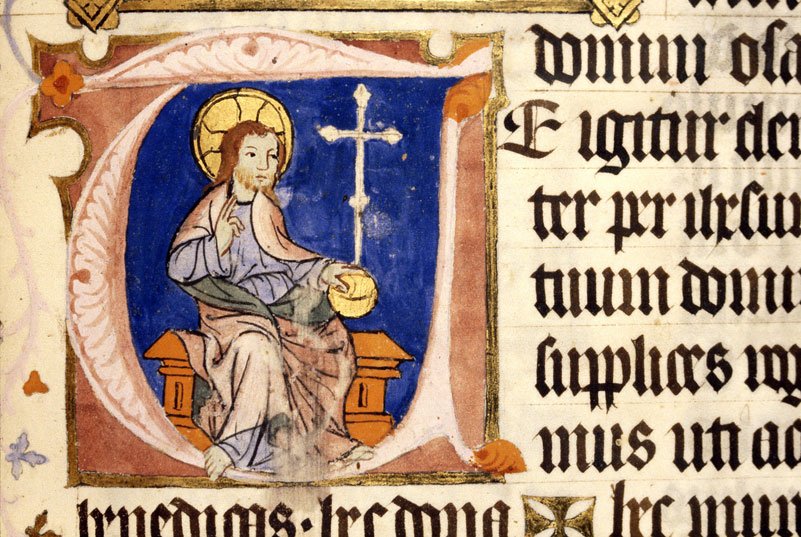 domini osa
E igitur cle
ter per ihesum
tuum domi
supplices rog
mus uti ac
benedicas. hec dona ✠ hec mun